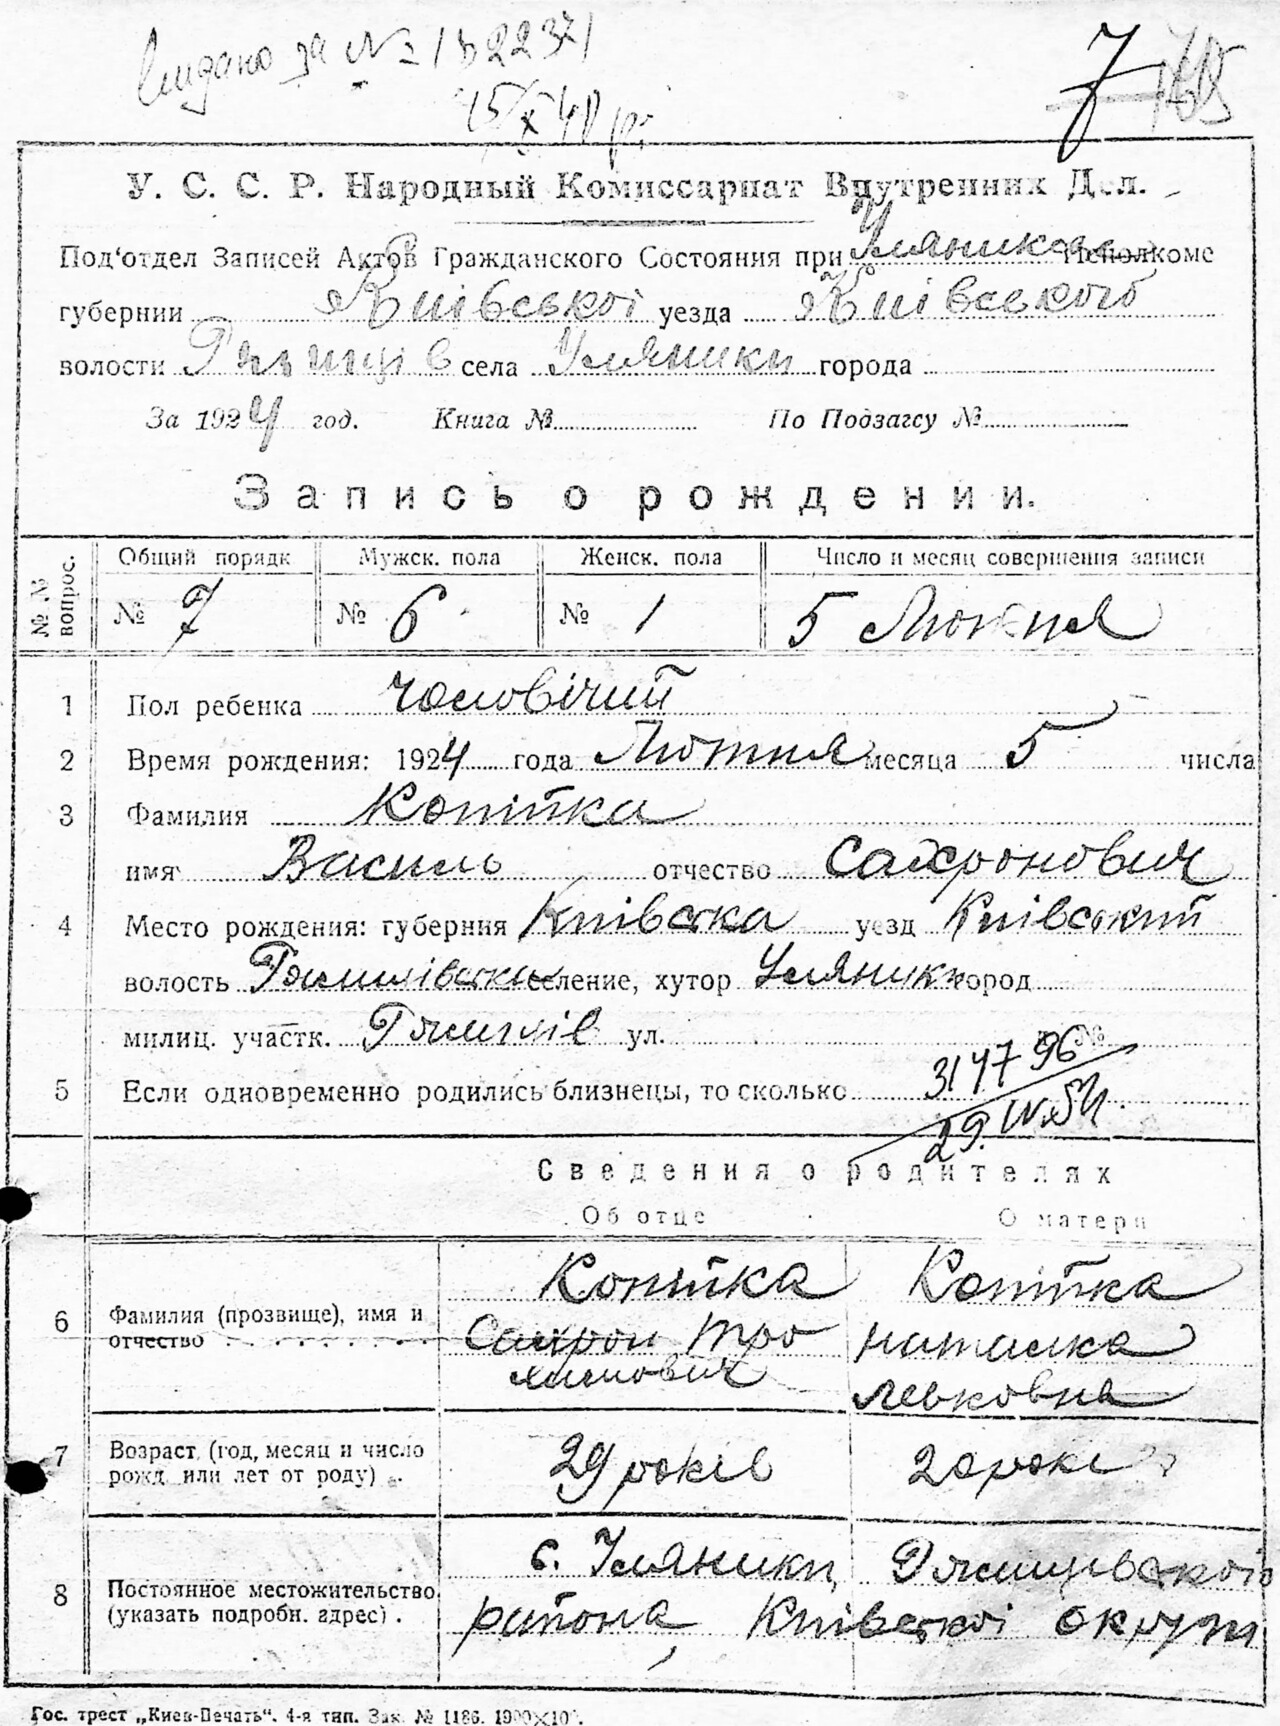 видано за №
15/X 40 р.
7
У. С. С. Р. Народный Комиссариат Внутренних Дел.
Под'отдел Записей Актов Гражданского Состояния при Уляник Исполкоме
губернии Київської уезда Київського
волости села Уляники города
За 1924 год. Книга № По Подзагсу №
Запись о рождении.
№ № вопрос. Общий порядк Мужск. пола Женск. пола Число и месяц совершения записи
№ 7 № 6 № 1 5 Лютня
1 Пол ребенка чоловічий
2 Время рождения: 1924 года Лютня месяца 5 числа
3 Фамилия Копійка
имя Василь отчество Сахронович
4 Место рождения: губерния Київська уезд Київський
волость селение, хутор Уляники город
милиц. участк. ул. №
5 Если одновременно родились близнецы, то сколько
Сведения о родителях
Об отце О матери
6 Фамилия (прозвище), имя и отчество Копійка Копійка
Сахрон Тро Наталка
химович Левковна
7 Возраст (год, месяц и число рожд или лет от роду) 29 років 20 років
8 Постоянное местожительство (указать подробн. адрес). с. Уляники, Ржищевської
району, Київської округи
Гос. трест „Киев-Печать“. 4-я тип. Зак. № 1186.